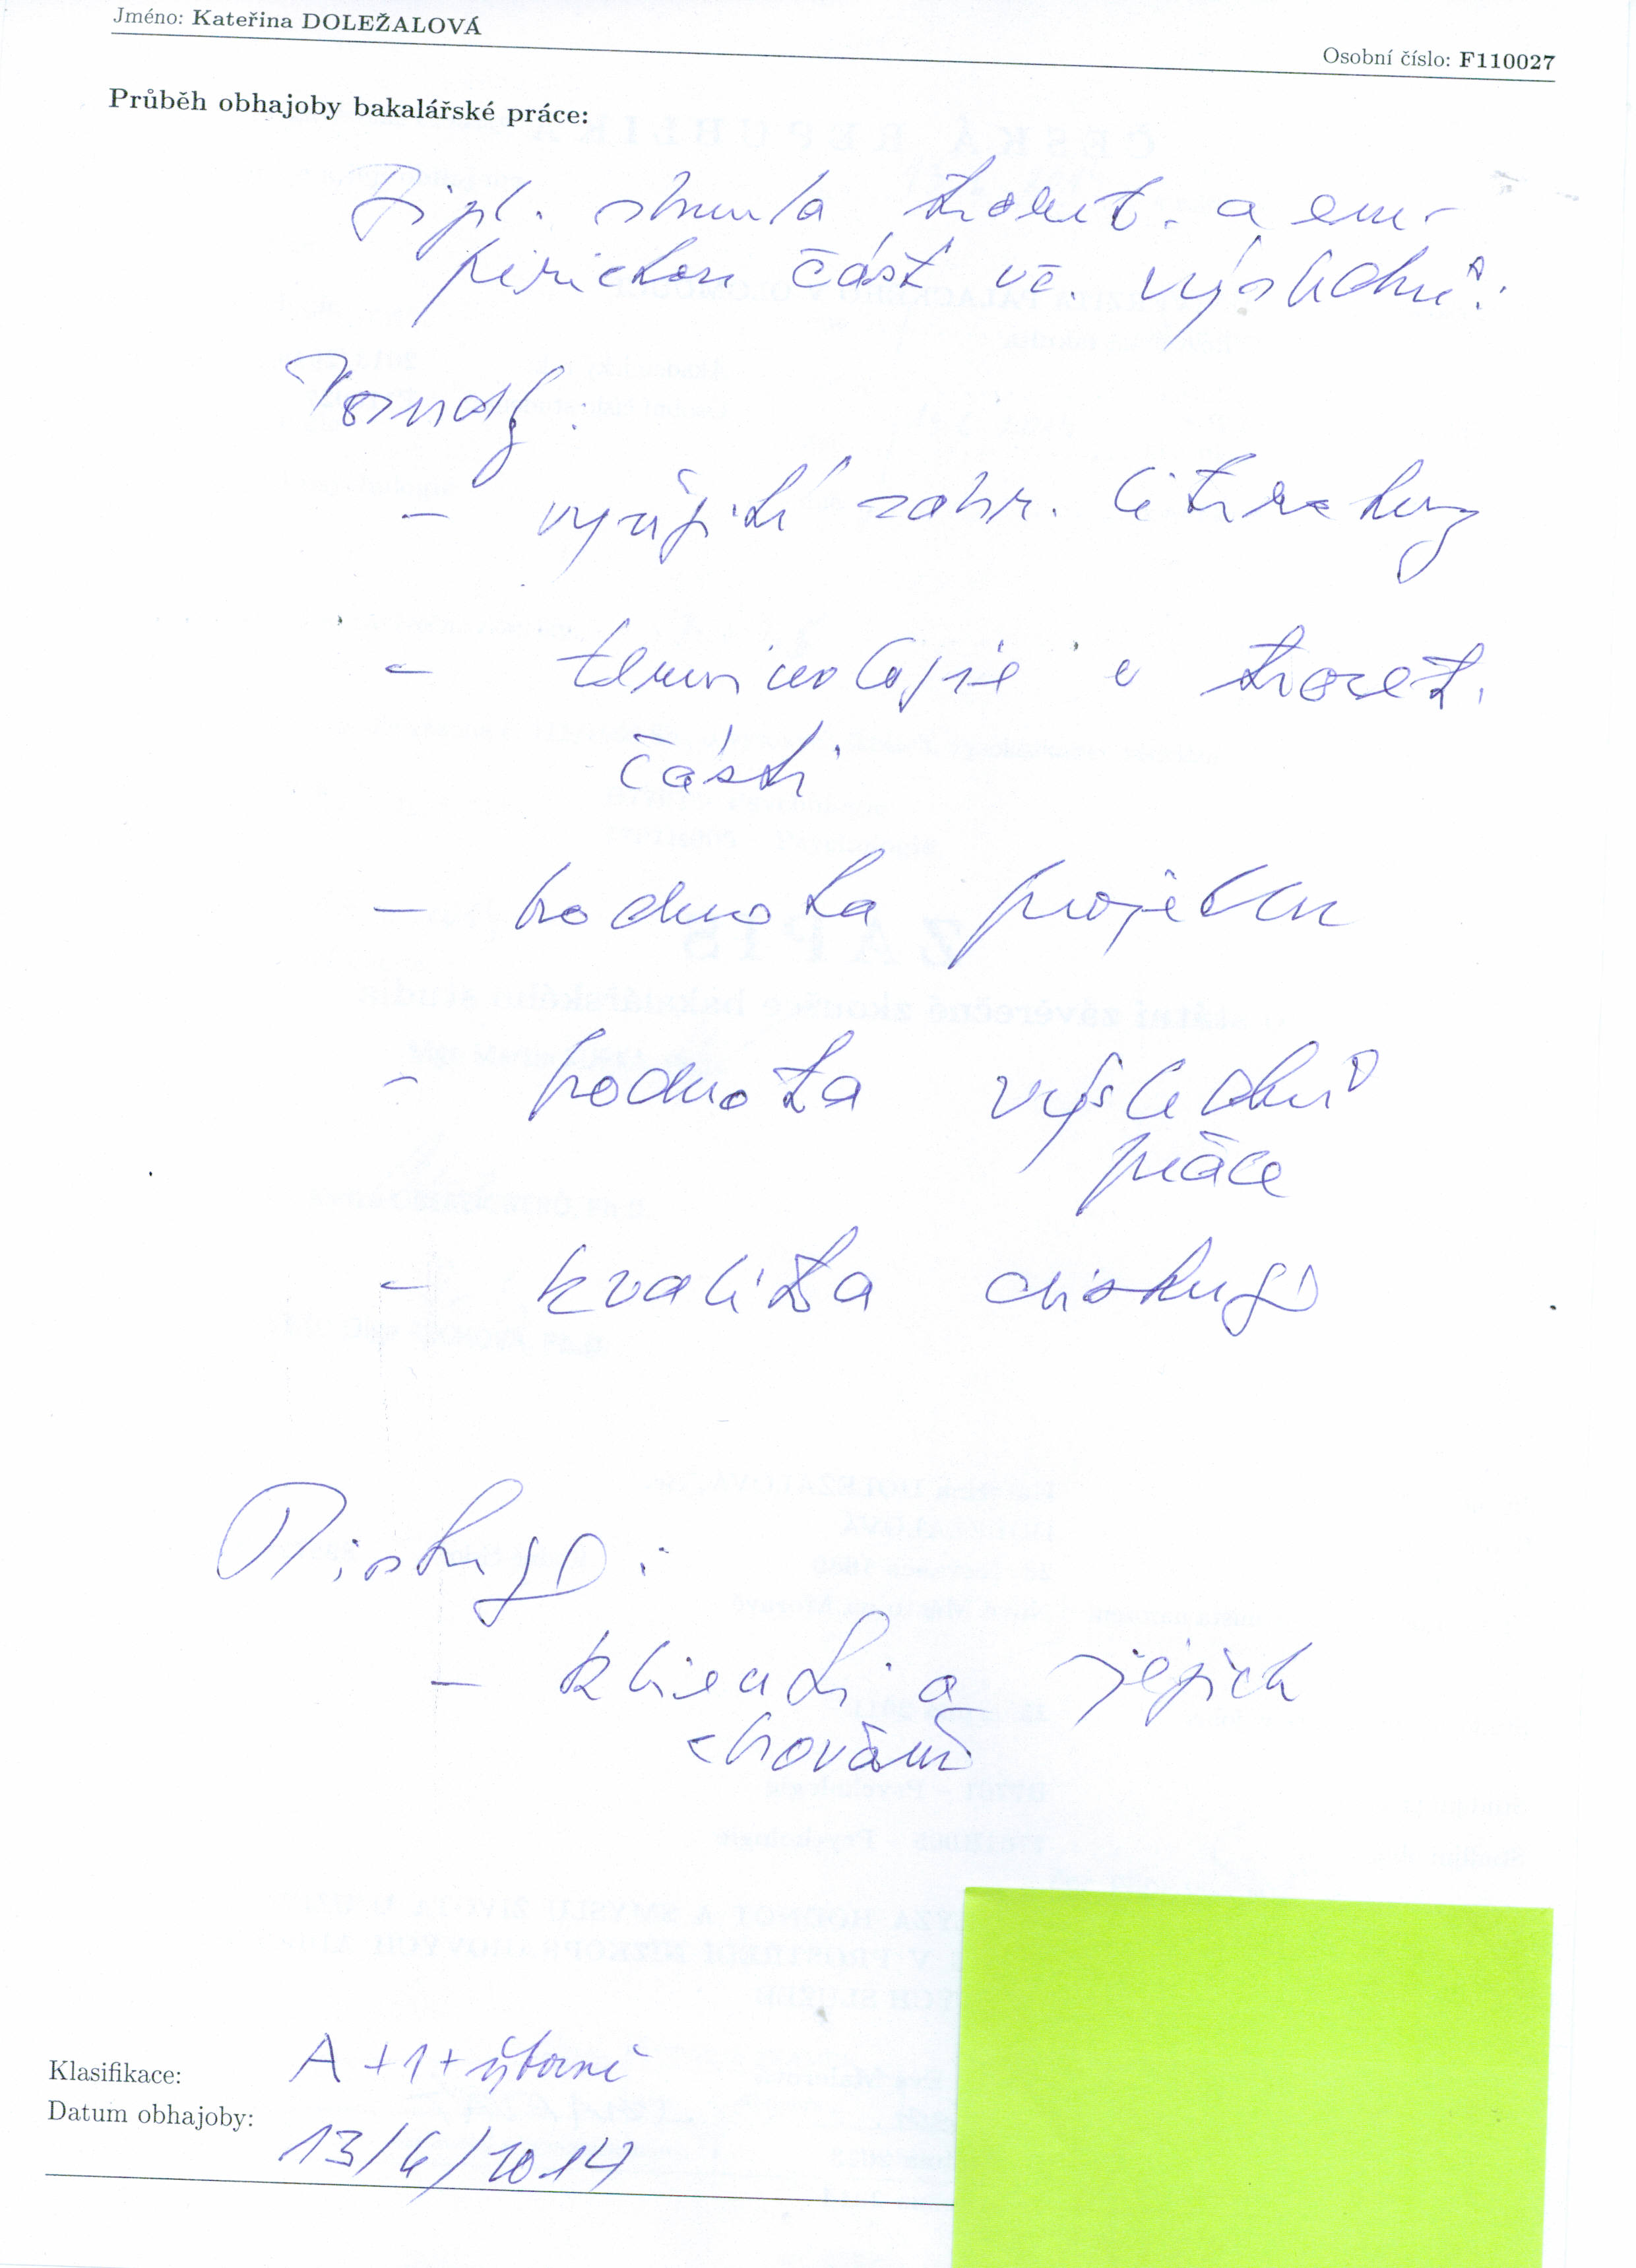 Jméno: Kateřina DOLEŽALOVÁ
Osobní číslo: F110027
Průběh obhajoby bakalářské práce:
Dipl. shrnula teoret. a em-
pirickou část vč. výsledků.
Posudky:
- využití zahr. literatury
- terminologie v teoret.
části
- hodnota projektu
- hodnota výsledků
práce
- kvalita diskuze
Diskuze:
- klienti a jejich
chování
Klasifikace: A+1+výborně
Datum obhajoby: 13/6/2014